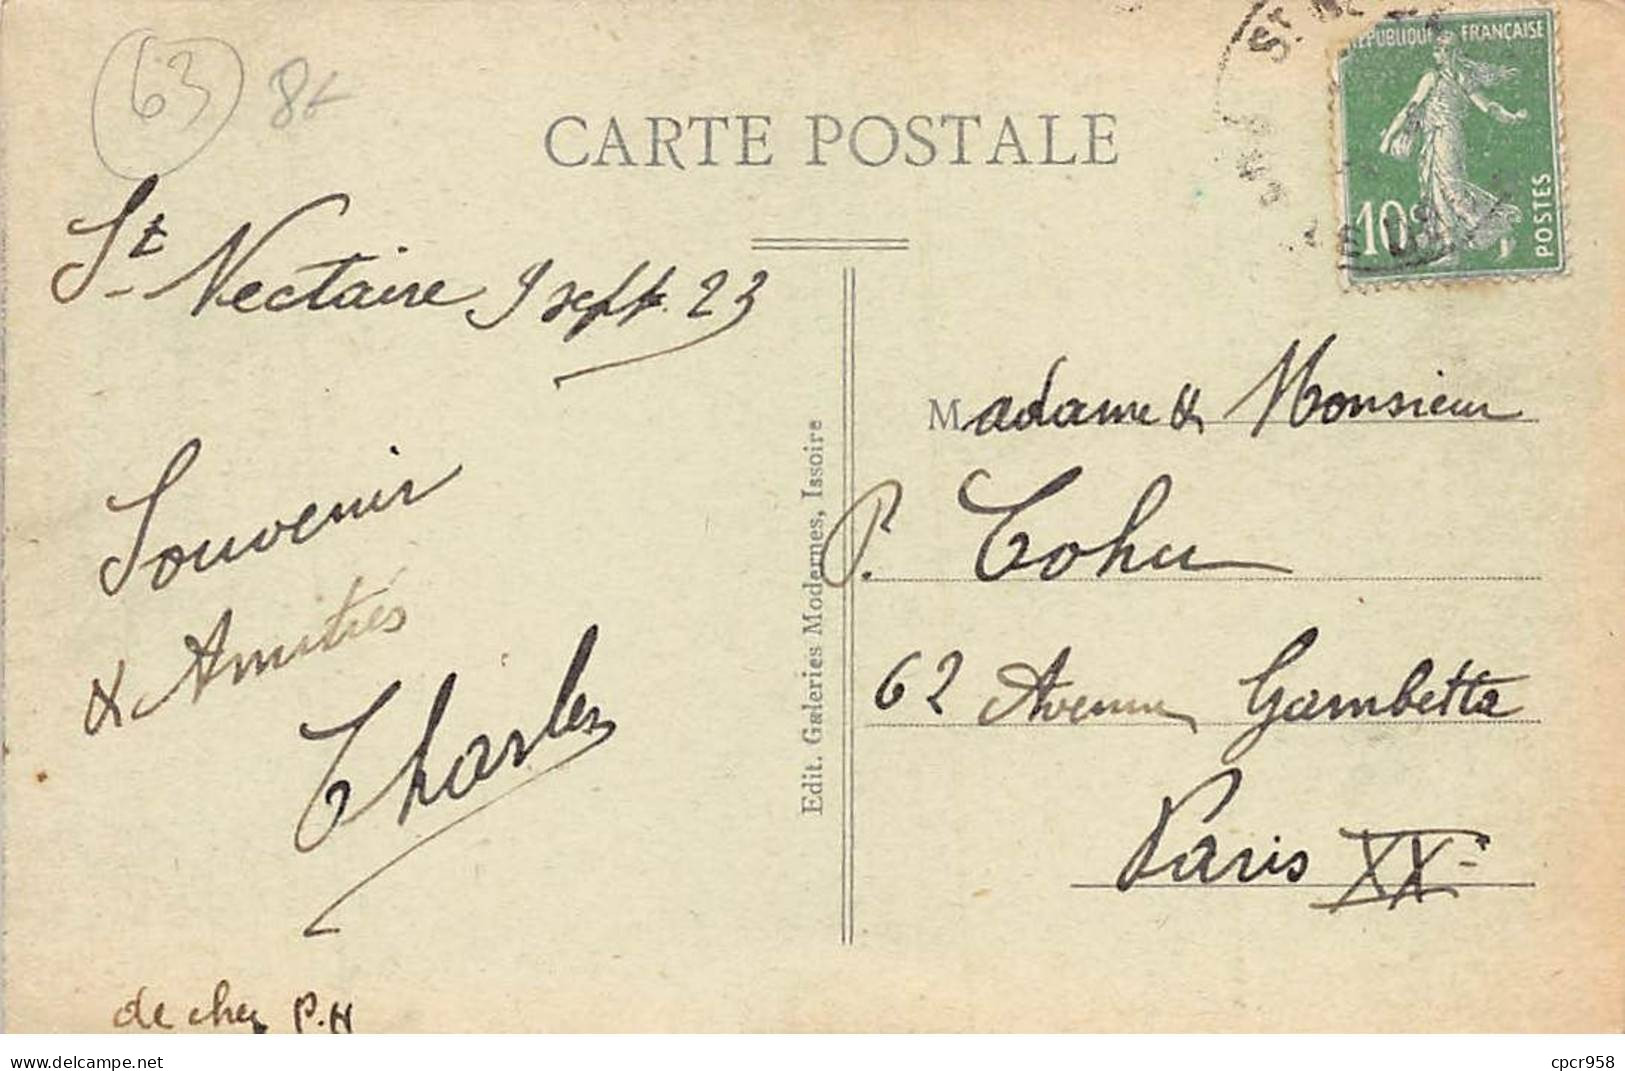 63
8€
CARTE POSTALE
St Nectaire 9 sept. 23
Souvenir
& Amitiés
Charles
de chez P.H
Edit. Galeries Modernes, Issoire
RÉPUBLIQUE FRANÇAISE
10c
POSTES
Madame & Monsieur
P. Cohu
62 Avenue Gambetta
Paris XXe
delcampe.net
cpcr958